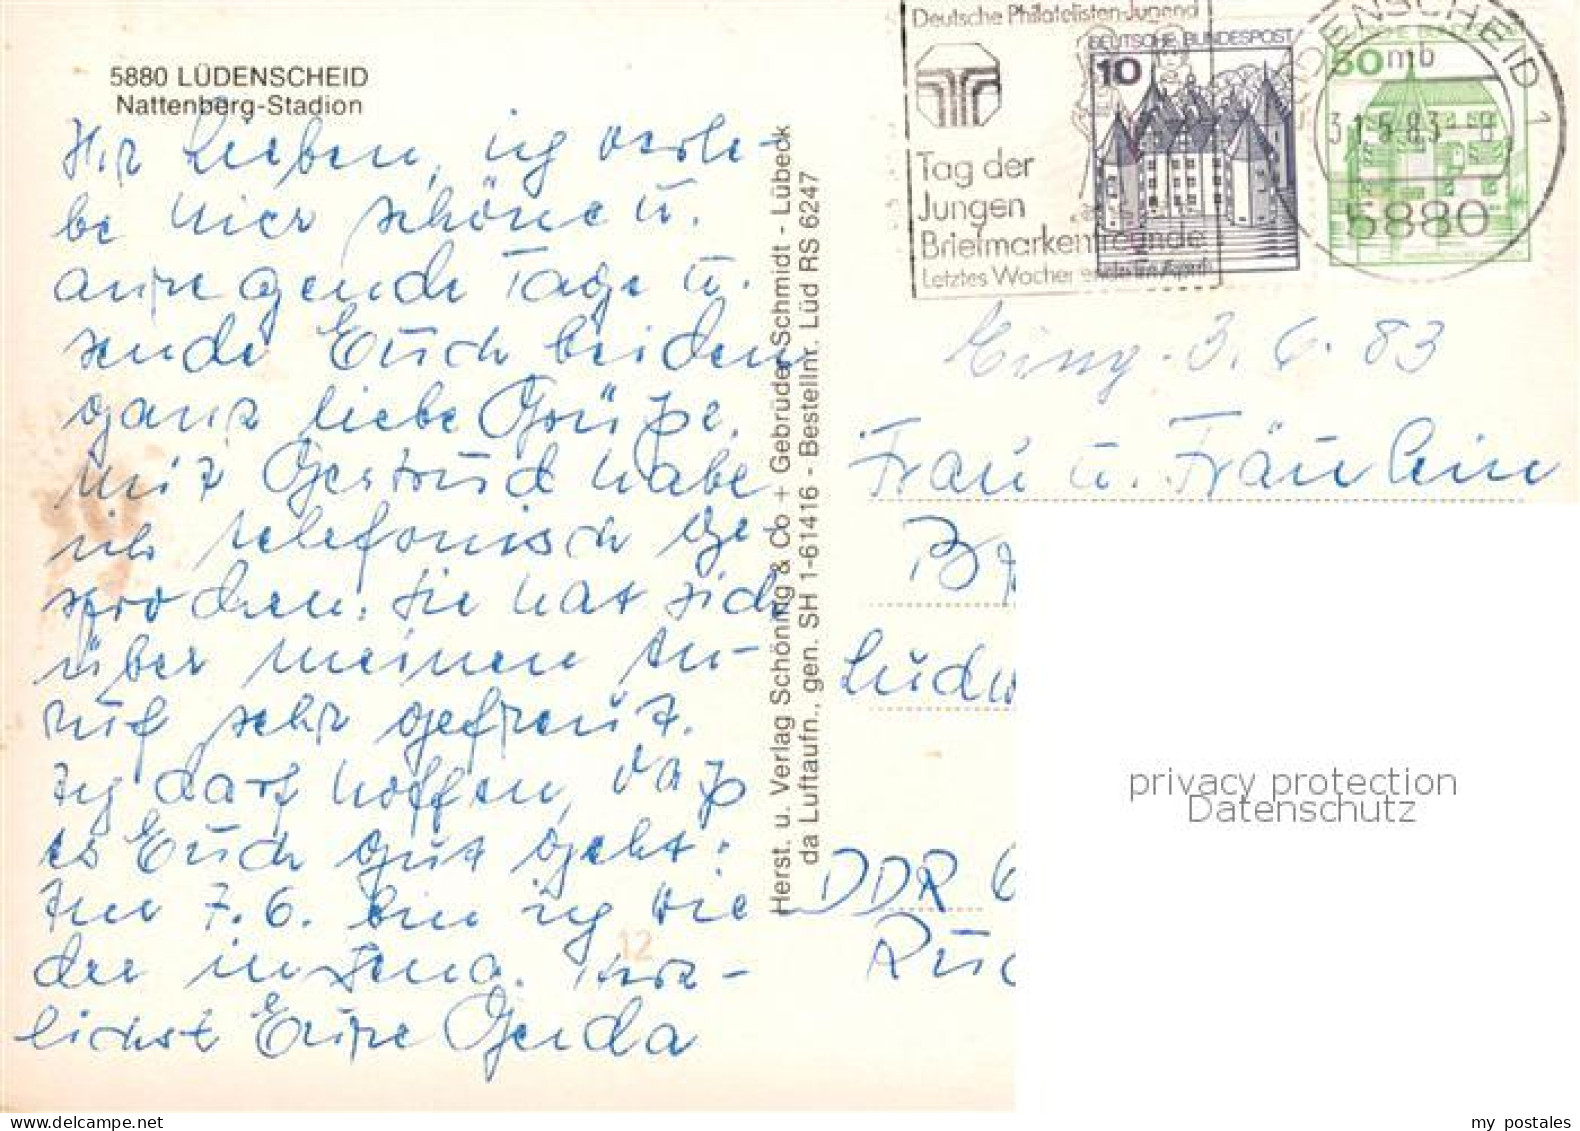 5880 LÜDENSCHEID
Nattenberg-Stadion
Ihr Lieben, ich verle-
be hier schöne u.
anregende Tage u.
sende Euch beiden
ganz liebe Grüße.
Mit Gertrud habe
ich telefonisch ge-
sprochen. Sie hat sich
über meinen An-
ruf sehr gefreut.
Ich darf hoffen, daß
es Euch gut geht.
Am 7.6. bin ich wie
der in Jena. Herz-
lichst Eure Gerda
12
Herst. u. Verlag Schöning & Co + Gebrüder Schmidt - Lübeck
da Luftaufn., gen. SH 1-61416 - Bestellnr. Lüd RS 6247
Deutsche Philatelisten-Jugend
Tag der
Jungen
Briefmarkenfreunde
Letztes Wochenende im April
DEUTSCHE BUNDESPOST
10
60
LÜDENSCHEID 1
mb
31.5.83 - 8
5880
Eing. 3. 6. 83
Frau u. Fräulein
Br
Ludw
DDR 6
Rud
privacy protection
Datenschutz
my postales